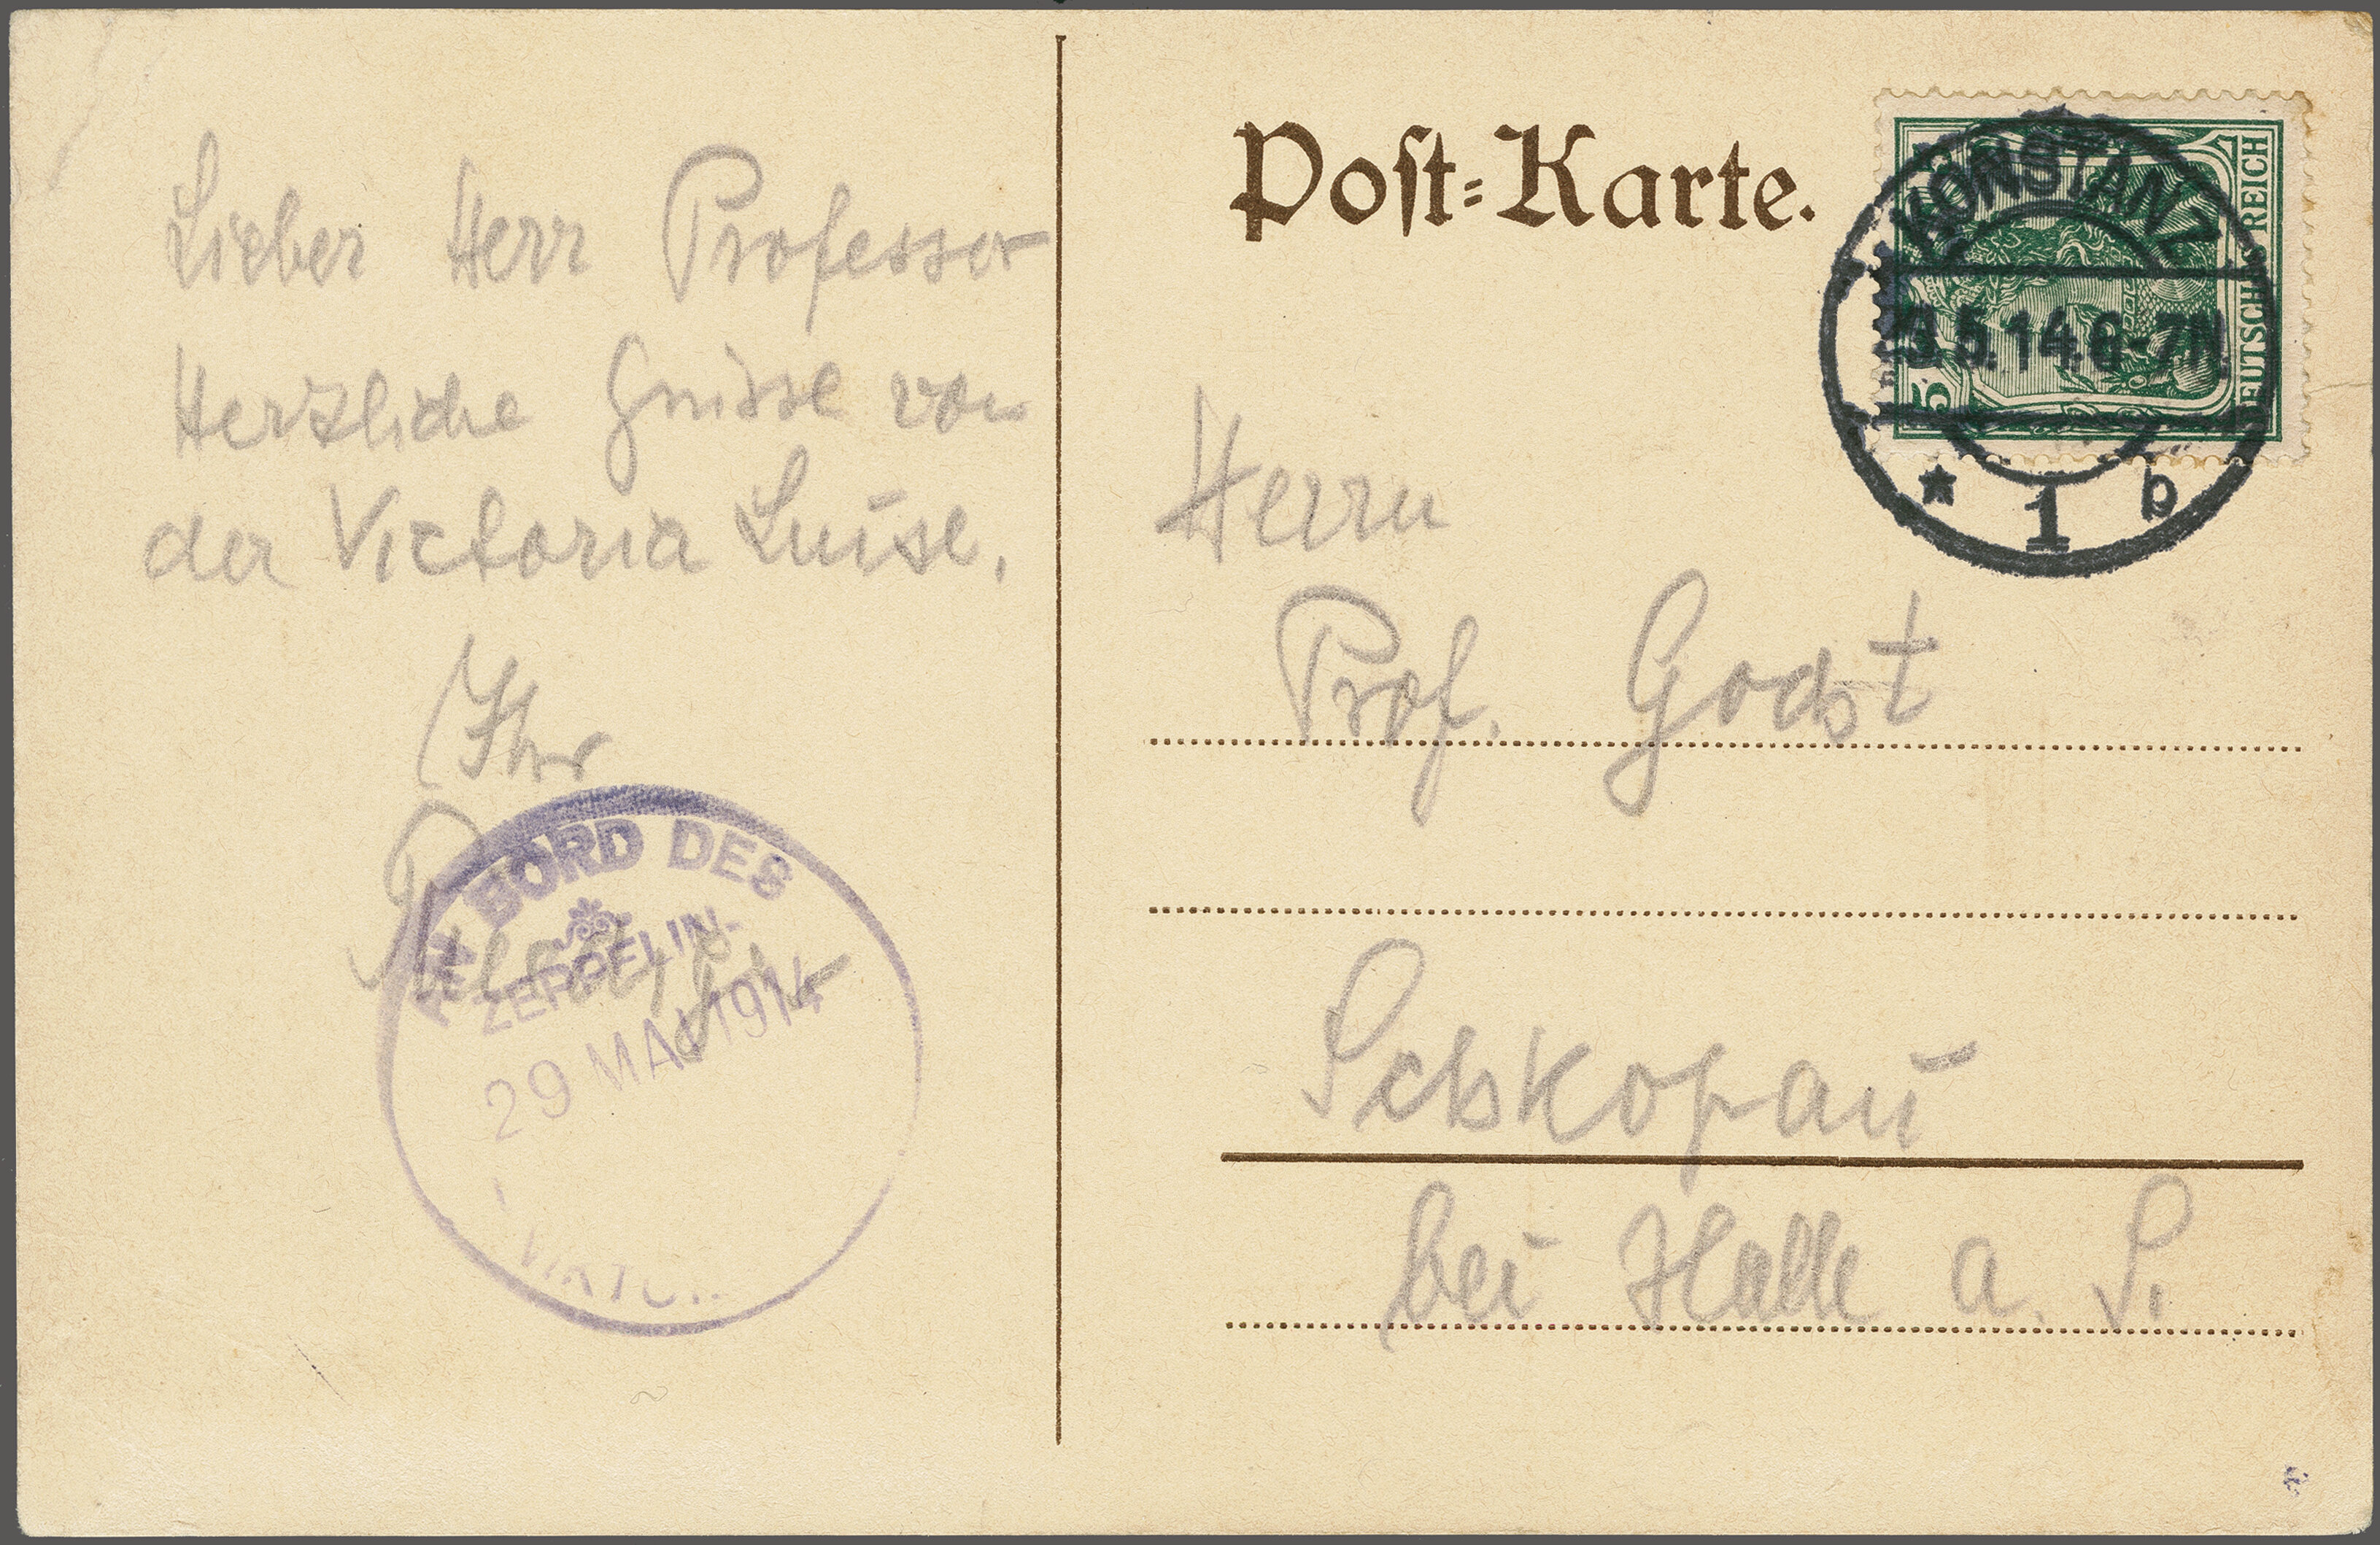 Lieber Herr Professor
Herzliche Grüsse von
der Victoria Luise.
Ihr
AN BORD DES
ZEPPELIN-
29 MAI 1914
Post-Karte.
DEUTSCHES REICH
5
KONSTANZ
5.14.6-7N.
* 1 b
Herrn
Prof.
Schkopau
bei Halle a. S.